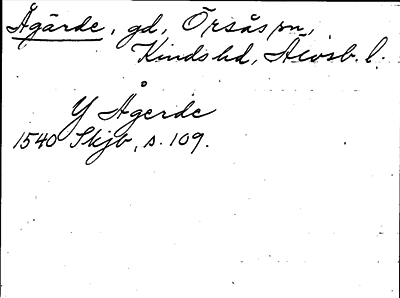 Ågärde, gd, Örsås sn,
Kinds hd, Älvsb. l.
Y Ågerde
1540 Skjb, s. 109.